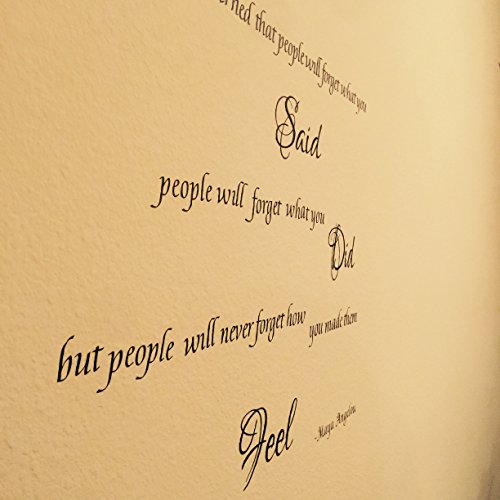 rned that people will forget what you
Said
people will forget what you
Did
but people will never forget how you made them
Feel
-Maya Angelou